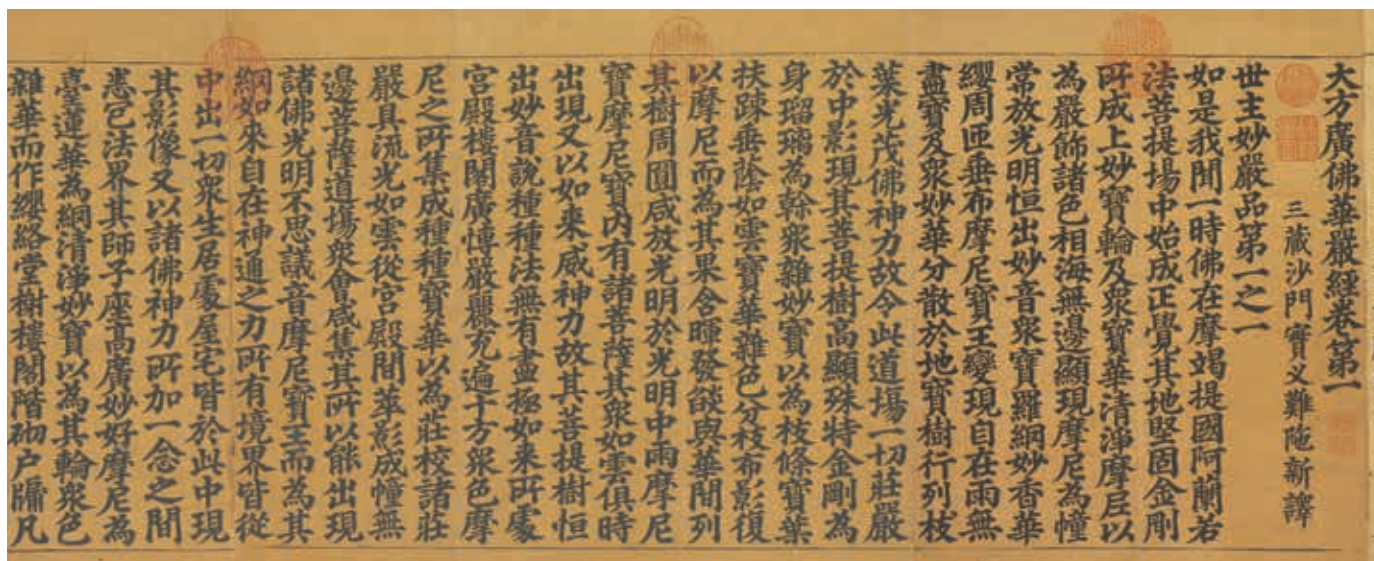 大方廣佛華嚴經卷第一
三藏沙門實叉難陁新譯
世主妙嚴品第一之一
如是我聞一時佛在摩竭提國阿蘭若
法菩提場中始成正覺其地堅固金剛
所成上妙寶輪及衆寶華清淨摩尼以
為嚴飾諸色相海無邊顯現摩尼為幢
常放光明恒出妙音衆寶羅網妙香華
纓周匝垂布摩尼寶王變現自在雨無
盡寶及衆妙華分散於地寶樹行列枝
葉光茂佛神力故令此道場一切莊嚴
於中影現其菩提樹高顯殊特金剛為
身瑠璃為幹衆雜妙寶以為枝條寶葉
扶踈垂蔭如雲寶華雜色分枝布影復
以摩尼而為其果含暉發燄與華間列
其樹周圓咸放光明於光明中雨摩尼
寶摩尼寶內有諸菩薩其衆如雲俱時
出現又以如来威神力故其菩提樹恒
出妙音說種種法無有盡極如来所處
宮殿樓閣廣博嚴麗充遍十方衆色摩
尼之所集成種種寶華以為莊校諸莊
嚴具流光如雲從宮殿間萃影成幢無
邊菩薩道場衆會咸集其所以能出現
諸佛光明不思議音摩尼寶王而為其
網如來自在神通之力所有境界皆從
中出一切衆生居處屋宅皆於此中現
其影像又以諸佛神力所加一念之間
悉包法界其師子座高廣妙好摩尼為
臺蓮華為網清淨妙寶以為其輪衆色
雜華而作纓絡堂榭樓閣階砌户牖凡